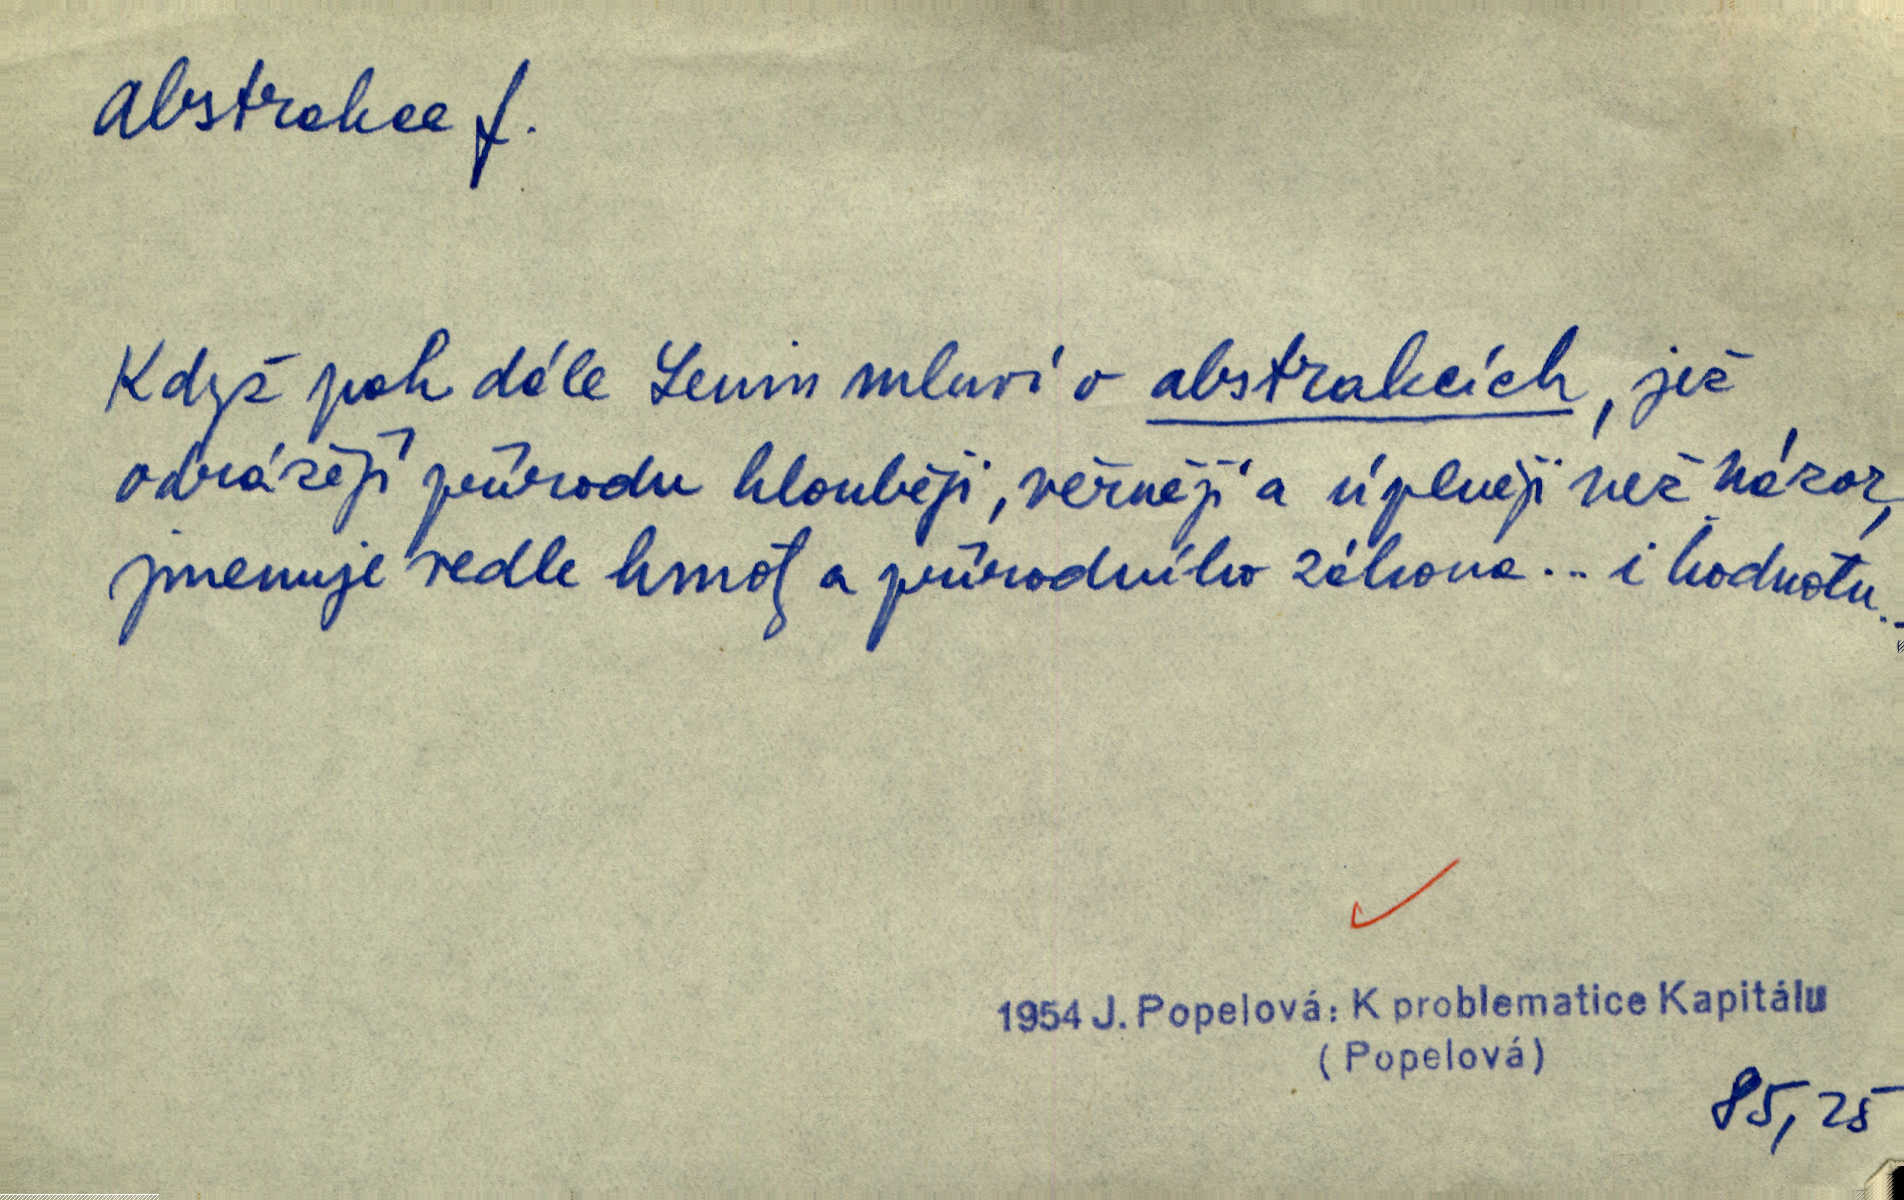 abstrakce f.
Když pak dále Lenin mluví o abstrakcích, jež
odrážejí přírodu hlouběji, věrněji a úplněji než názor,
jmenuje vedle hmoty a přírodního zákona... i hodnotu...
1954 J. Popelová: K problematice Kapitálu
(Popelová)
85, 25